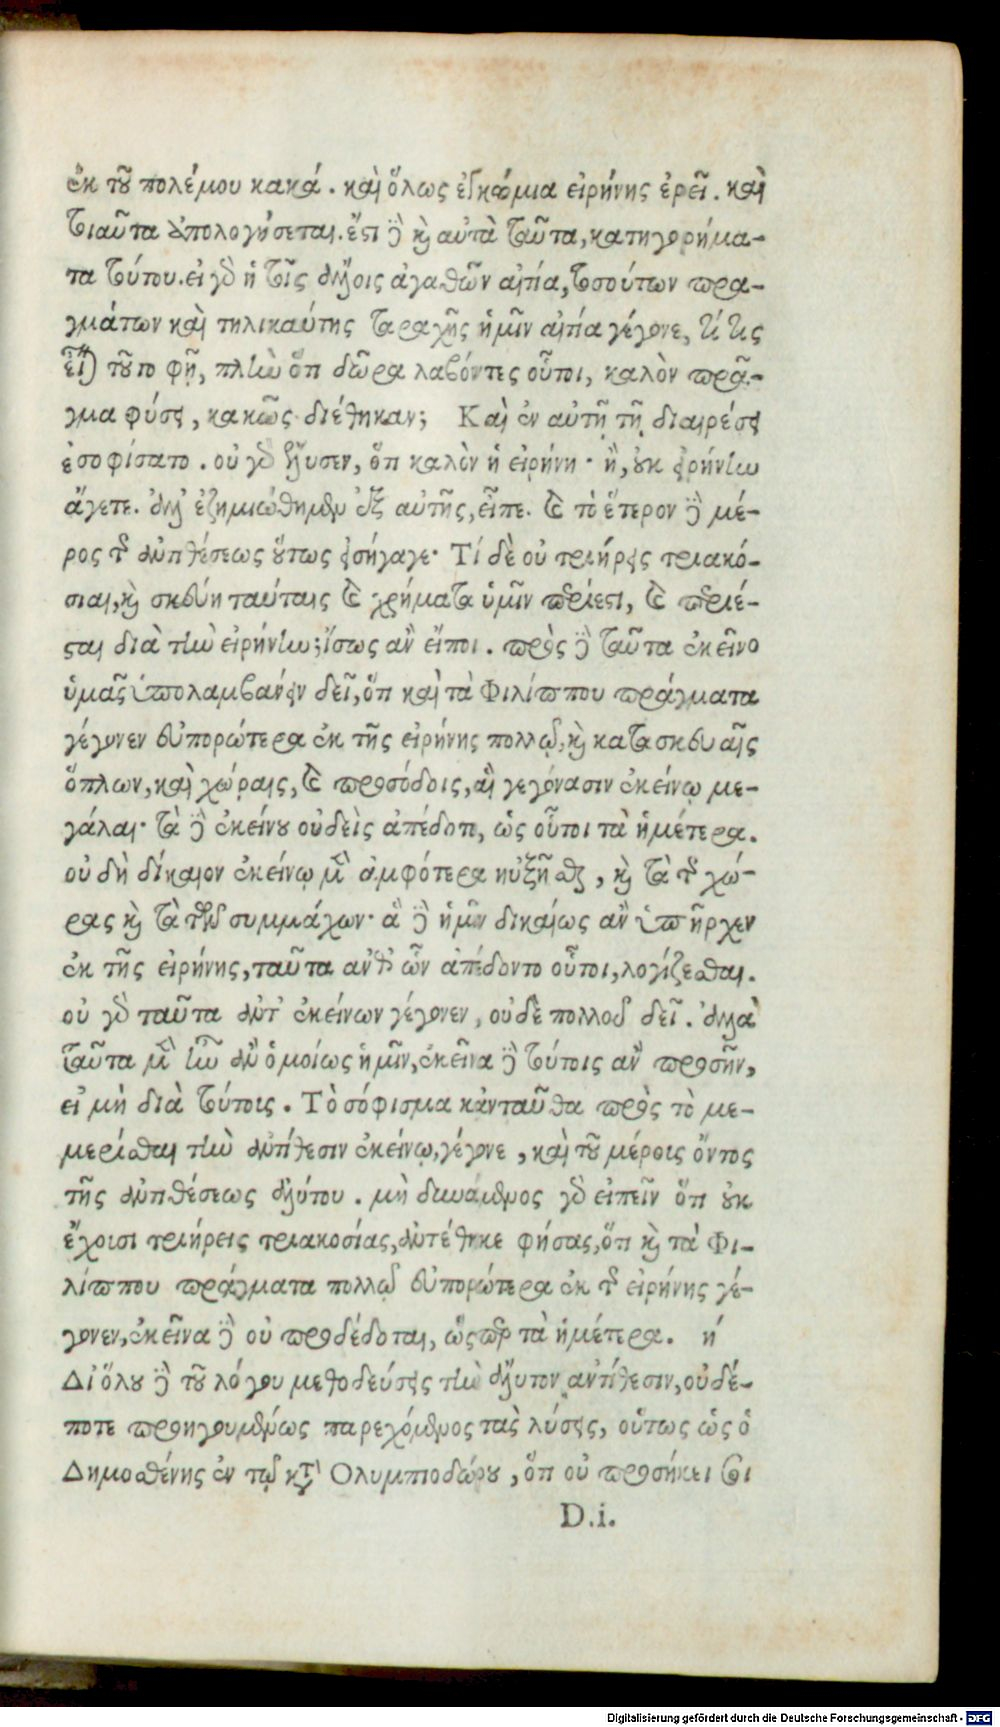 ἐκ τοῦ πολέμου κακά. καὶ ὅλως ἐγκώμια εἰρήνης ἐρεῖ. καὶ
τοιαῦτα ἀπολογήσεται. ἔστι δὲ καὶ αὐτὰ ταῦτα, κατηγορήμα-
τα τούτου. εἰ γὰρ ἡ τοῖς ἄλλοις ἀγαθῶν αἰτία, τοσούτων πρα-
γμάτων καὶ τηλικαύτης ταραχῆς ἡμῖν αἰτία γέγονε, τί τις
εἶναι τοῦτο φῇ, πλὴν ὅτι δῶρα λαβόντες οὗτοι, καλὸν πρᾶ-
γμα φύσει, κακῶς διέθηκαν; Καὶ ἐν αὐτῇ τῇ διαιρέσει
ἐσοφίσατο. οὐ γὰρ ἔλυσεν, ὅτι καλὸν ἡ εἰρήνη· ἢ, οὐκ εἰρήνην
ἄγετε. ἀλλ' ἐζημιώθημεν ἐξ αὐτῆς, εἶπε. καὶ τὸ ἕτερον δὲ μέ-
ρος τῆς ἀντιθέσεως οὕτως εἰσήγαγε· Τί δὲ οὐ τριήρεις τριακό-
σιαι, καὶ σκεύη ταύταις καὶ χρήματα ὑμῖν περίεστι, καὶ περιέ-
σται διὰ τὴν εἰρήνην; ἴσως ἂν εἴποι. πρὸς δὲ ταῦτα ἐκεῖνο
ὑμᾶς ὑπολαμβάνειν δεῖ, ὅτι καὶ τὰ Φιλίππου πράγματα
γέγονεν εὐπορώτερα ἐκ τῆς εἰρήνης πολλῷ, καὶ κατασκευαῖς
ὅπλων, καὶ χώραις, καὶ προσόδοις, αἳ γεγόνασιν ἐκείνῳ με-
γάλαι· τὰ δὲ ἐκείνου οὐδεὶς ἀπέδοτο, ὡς οὗτοι τὰ ἡμέτερα.
οὐ δὴ δίκαιον ἐκείνῳ μὲν ἀμφότερα ηὐξῆσθαι, καὶ τὰ τῆς χώ-
ρας καὶ τὰ τῶν συμμάχων· ἃ δὲ ἡμῖν δικαίως ἂν ὑπῆρχεν
ἐκ τῆς εἰρήνης, ταῦτα ἀνθ' ὧν ἀπέδοντο οὗτοι, λογίζεσθαι.
οὐ γὰρ ταῦτα ἀντ' ἐκείνων γέγονεν, οὐδὲ πολλοῦ δεῖ. ἀλλὰ
ταῦτα μὲν ἦν ἂν ὁμοίως ἡμῖν, ἐκεῖνα δὲ τούτοις ἂν προσῆν,
εἰ μὴ διὰ τούτους. Τὸ σόφισμα κἀνταῦθα πρὸς τὸ με-
μερίσθαι τὴν ἀντίθεσιν ἐκείνῳ, γέγονε, καὶ τοῦ μέρους ὄντος
τῆς ἀντιθέσεως ἀλύτου. μὴ δυνάμενος γὰρ εἰπεῖν ὅτι οὐκ
ἔχουσι τριήρεις τριακοσίας, ἀντέθηκε φήσας, ὅτι καὶ τὰ Φι-
λίππου πράγματα πολλῷ εὐπορώτερα ἐκ τῆς εἰρήνης γέ-
γονεν, ἐκεῖνα δὲ οὐ προδέδοται, ὥσπερ τὰ ἡμέτερα. ἡ
Δι' ὅλου δὲ τοῦ λόγου μεθοδεύσεις τὴν ἄλυτον ἀντίθεσιν, οὐδέ-
ποτε προηγουμένως παρεχόμενος τὰς λύσεις, οὕτως ὡς ὁ
Δημοσθένης ἐν τῷ κατ' Ὀλυμπιοδώρου, ὅτι οὐ προσήκει σοι
D.i.
Digitalisierung gefördert durch die Deutsche Forschungsgemeinschaft - DFG